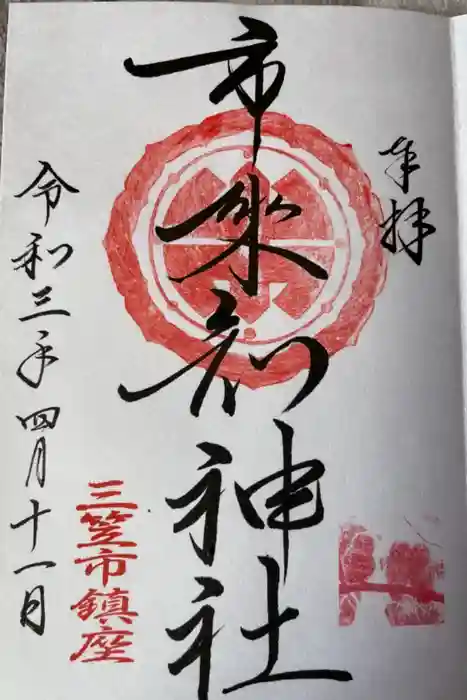 奉拝
市来知神社
三笠市鎮座
令和三年四月十一日